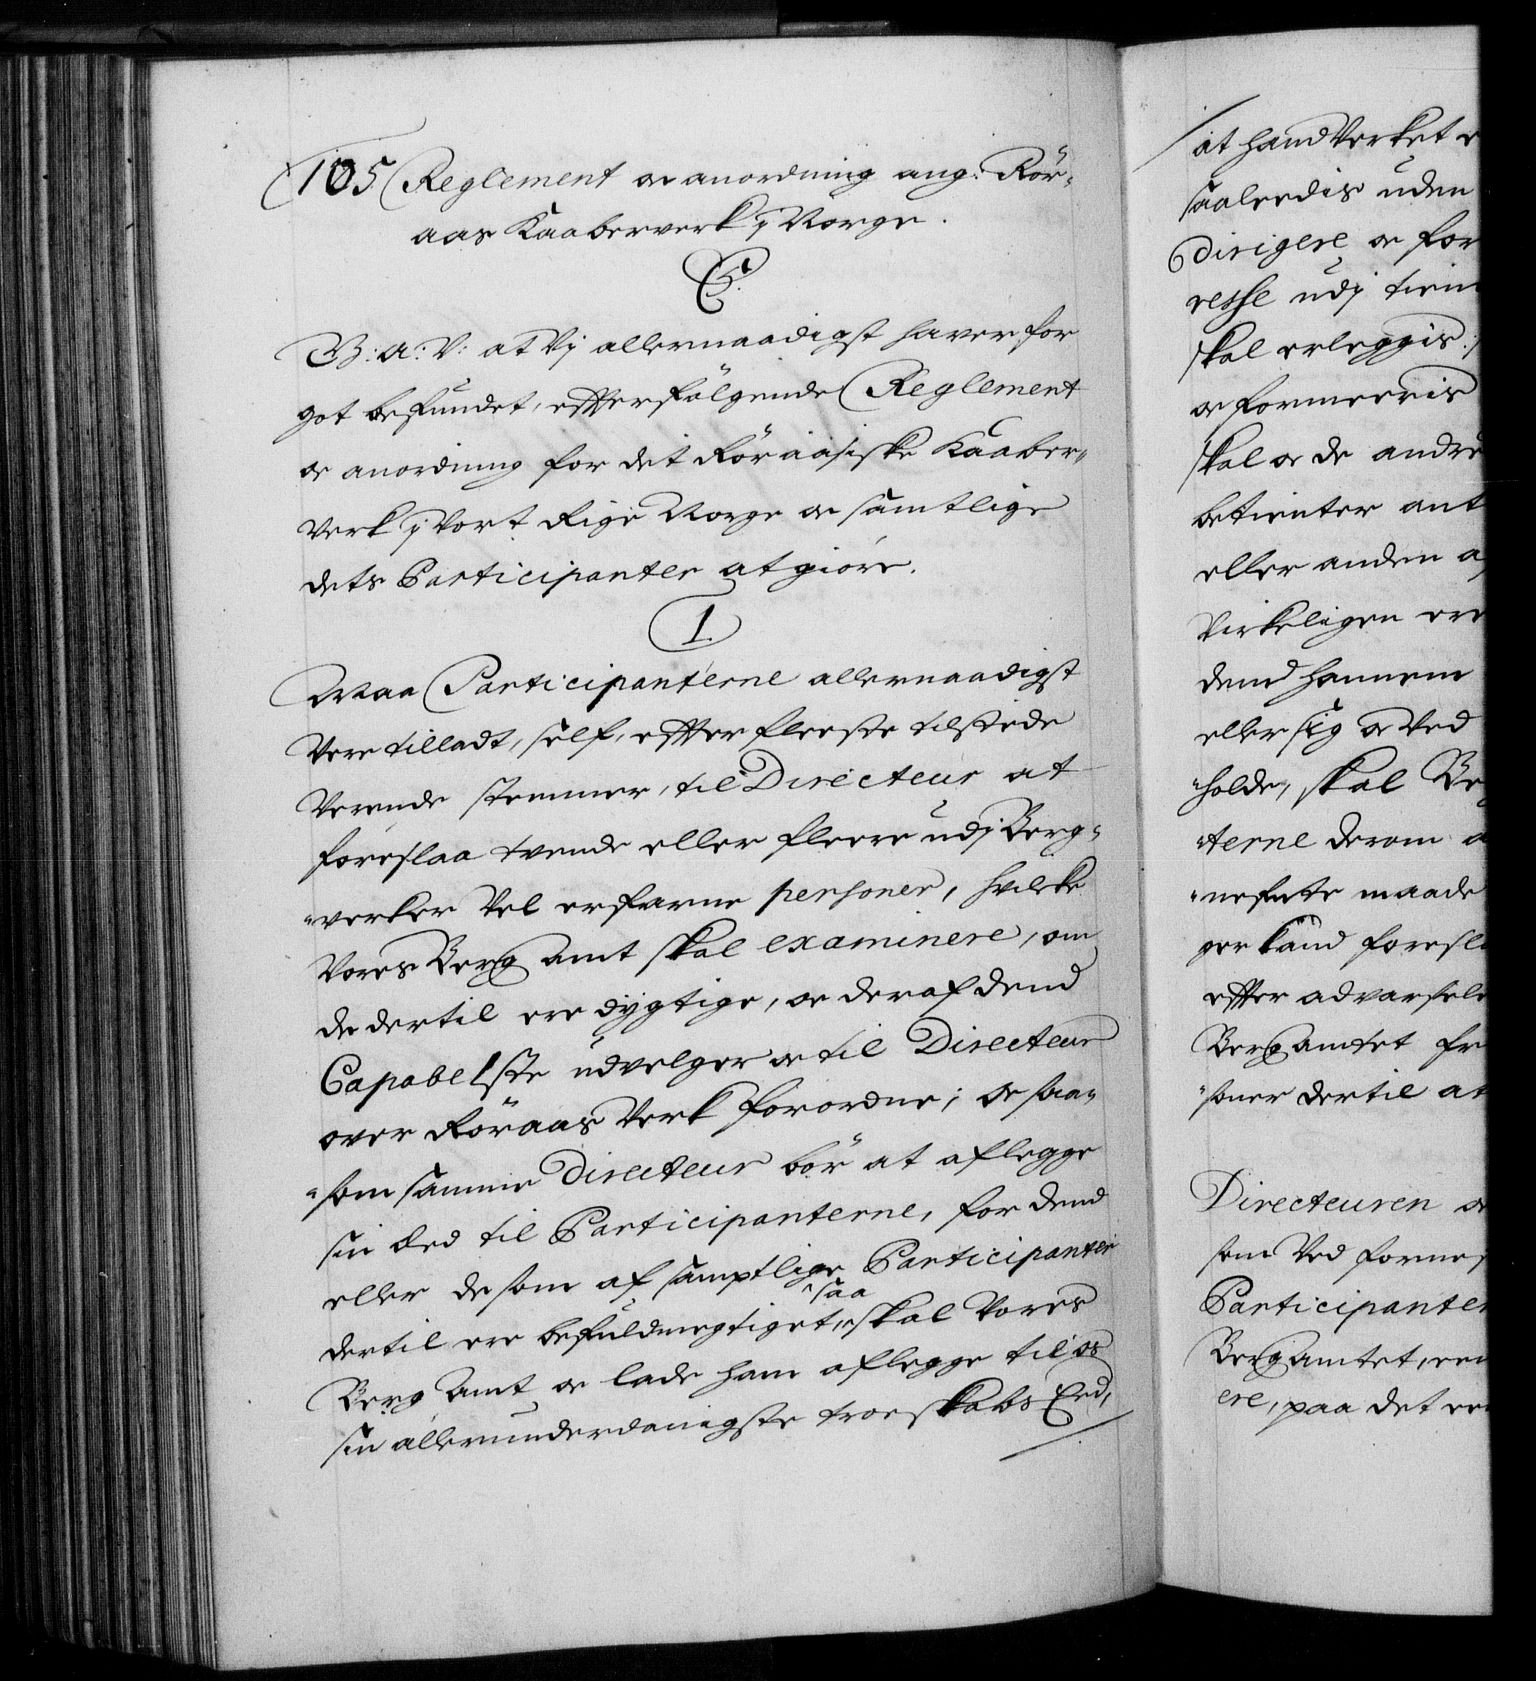 105 Reglement oc anordning ang: Rör-
aas Kaaberverk j Norge.
C5.
G: A: V: at Vj allernaadigst haver for
got befundet, effterfölgende Reglement
oc anordning for det Röraasiske Kaaber-
Verk j Vort Rige Norge oc samtlige
dets Participanter at giöre.
1.
Maa Participanterne allernaadigst
Vere tilladt, self, effter fleeste tilstede
Verende stemmer, til Directeur at
foreslaa tvende eller fleere udj Berg-
verker Vel erfarne personer, hvilcke
Vores Berg Amt skal examinere, om
de dertil ere dygtige, oc deraf dend
Capabelste udvelger oc til Directeur
over Röraas Verk forordne; oc saa-
som samme Directeur bör at aflegge
sin Eed til Participanterne, for dend
eller de som af samptlige Participanter
dertil ere befuldmegtiget, saa skal Vores
Berg Amt oc lade ham aflegge til os
sin allerunderdanigste troeskabs Eed,
at hand Verket
saaleedis uden
dirigere oc for
resse udj
skal erleggis
oc formeeris
skal oc de andre
betienter
eller anden
Virkeligen
dend hannem
eller sig oc Ved
holde, skal
terne derom
nefnte maade
ger kand
effter
Bergamtet
soner dertil at
Directeuren
som Ved
Participanter
Bergamtet,
ere, paa det